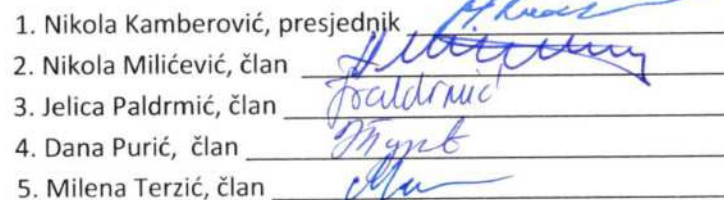 1. Nikola Kamberović, presjednik
2. Nikola Milićević, član
3. Jelica Paldrmić, član
4. Dana Purić, član
5. Milena Terzić, član